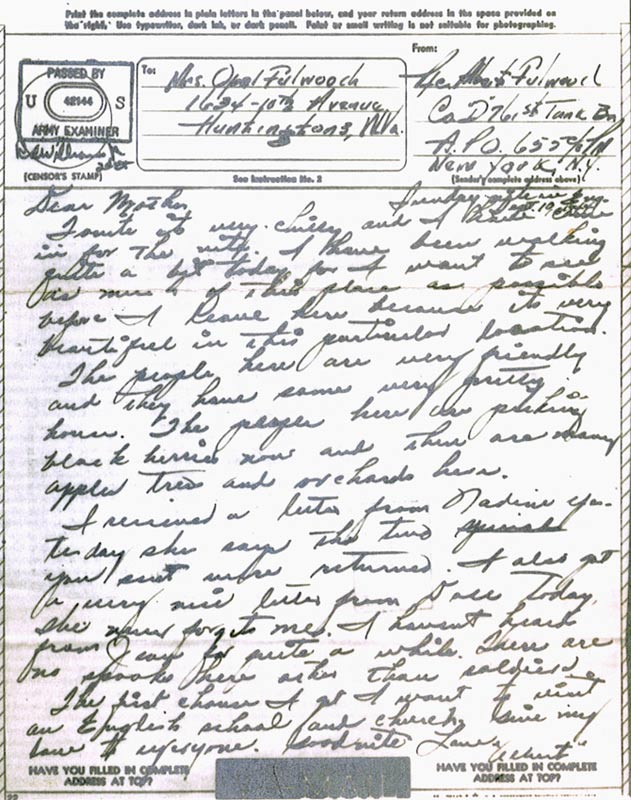 Print the complete address in plain letters in the panel below, and your return address in the space provided on
the right. Use typewriter, dark ink, or dark pencil. Faint or small writing is not suitable for photographing.
From:
PASSED BY
U 42144 S
ARMY EXAMINER
(CENSOR'S STAMP)
To:
Mrs. Opal Fulwood
1624-10th Avenue
Huntington 3, W.Va.
See Instruction No. 2
Fulwood
Co D 761st Tank Bn
A.P.O. 655 % P.M
New York, N.Y.
(Sender's complete address above)
Dear Mother, Sunday
Tonite is very chilly and I
in for the nite. I have been walking
quite a bit today for I want to see
as much of this place as possible
before I leave here because its very
beautiful in this particular location.
The people here are very friendly
and they have some very pretty
house. The people here are picking
black berries now and there are many
apples trees and orchards here.
I received a letter from Nadine yes-
terday she says the two
you sent were returned. I also got
a very nice letter from Today,
she never forgets me. I havent heard
from for quite a while. There are
no spooks here other than soldiers.
The first chance I get I want to visit
an English school and church. Give my
love to everyone. Goodnite Love
HAVE YOU FILLED IN COMPLETE
ADDRESS AT TOP?
HAVE YOU FILLED IN COMPLETE
ADDRESS AT TOP?